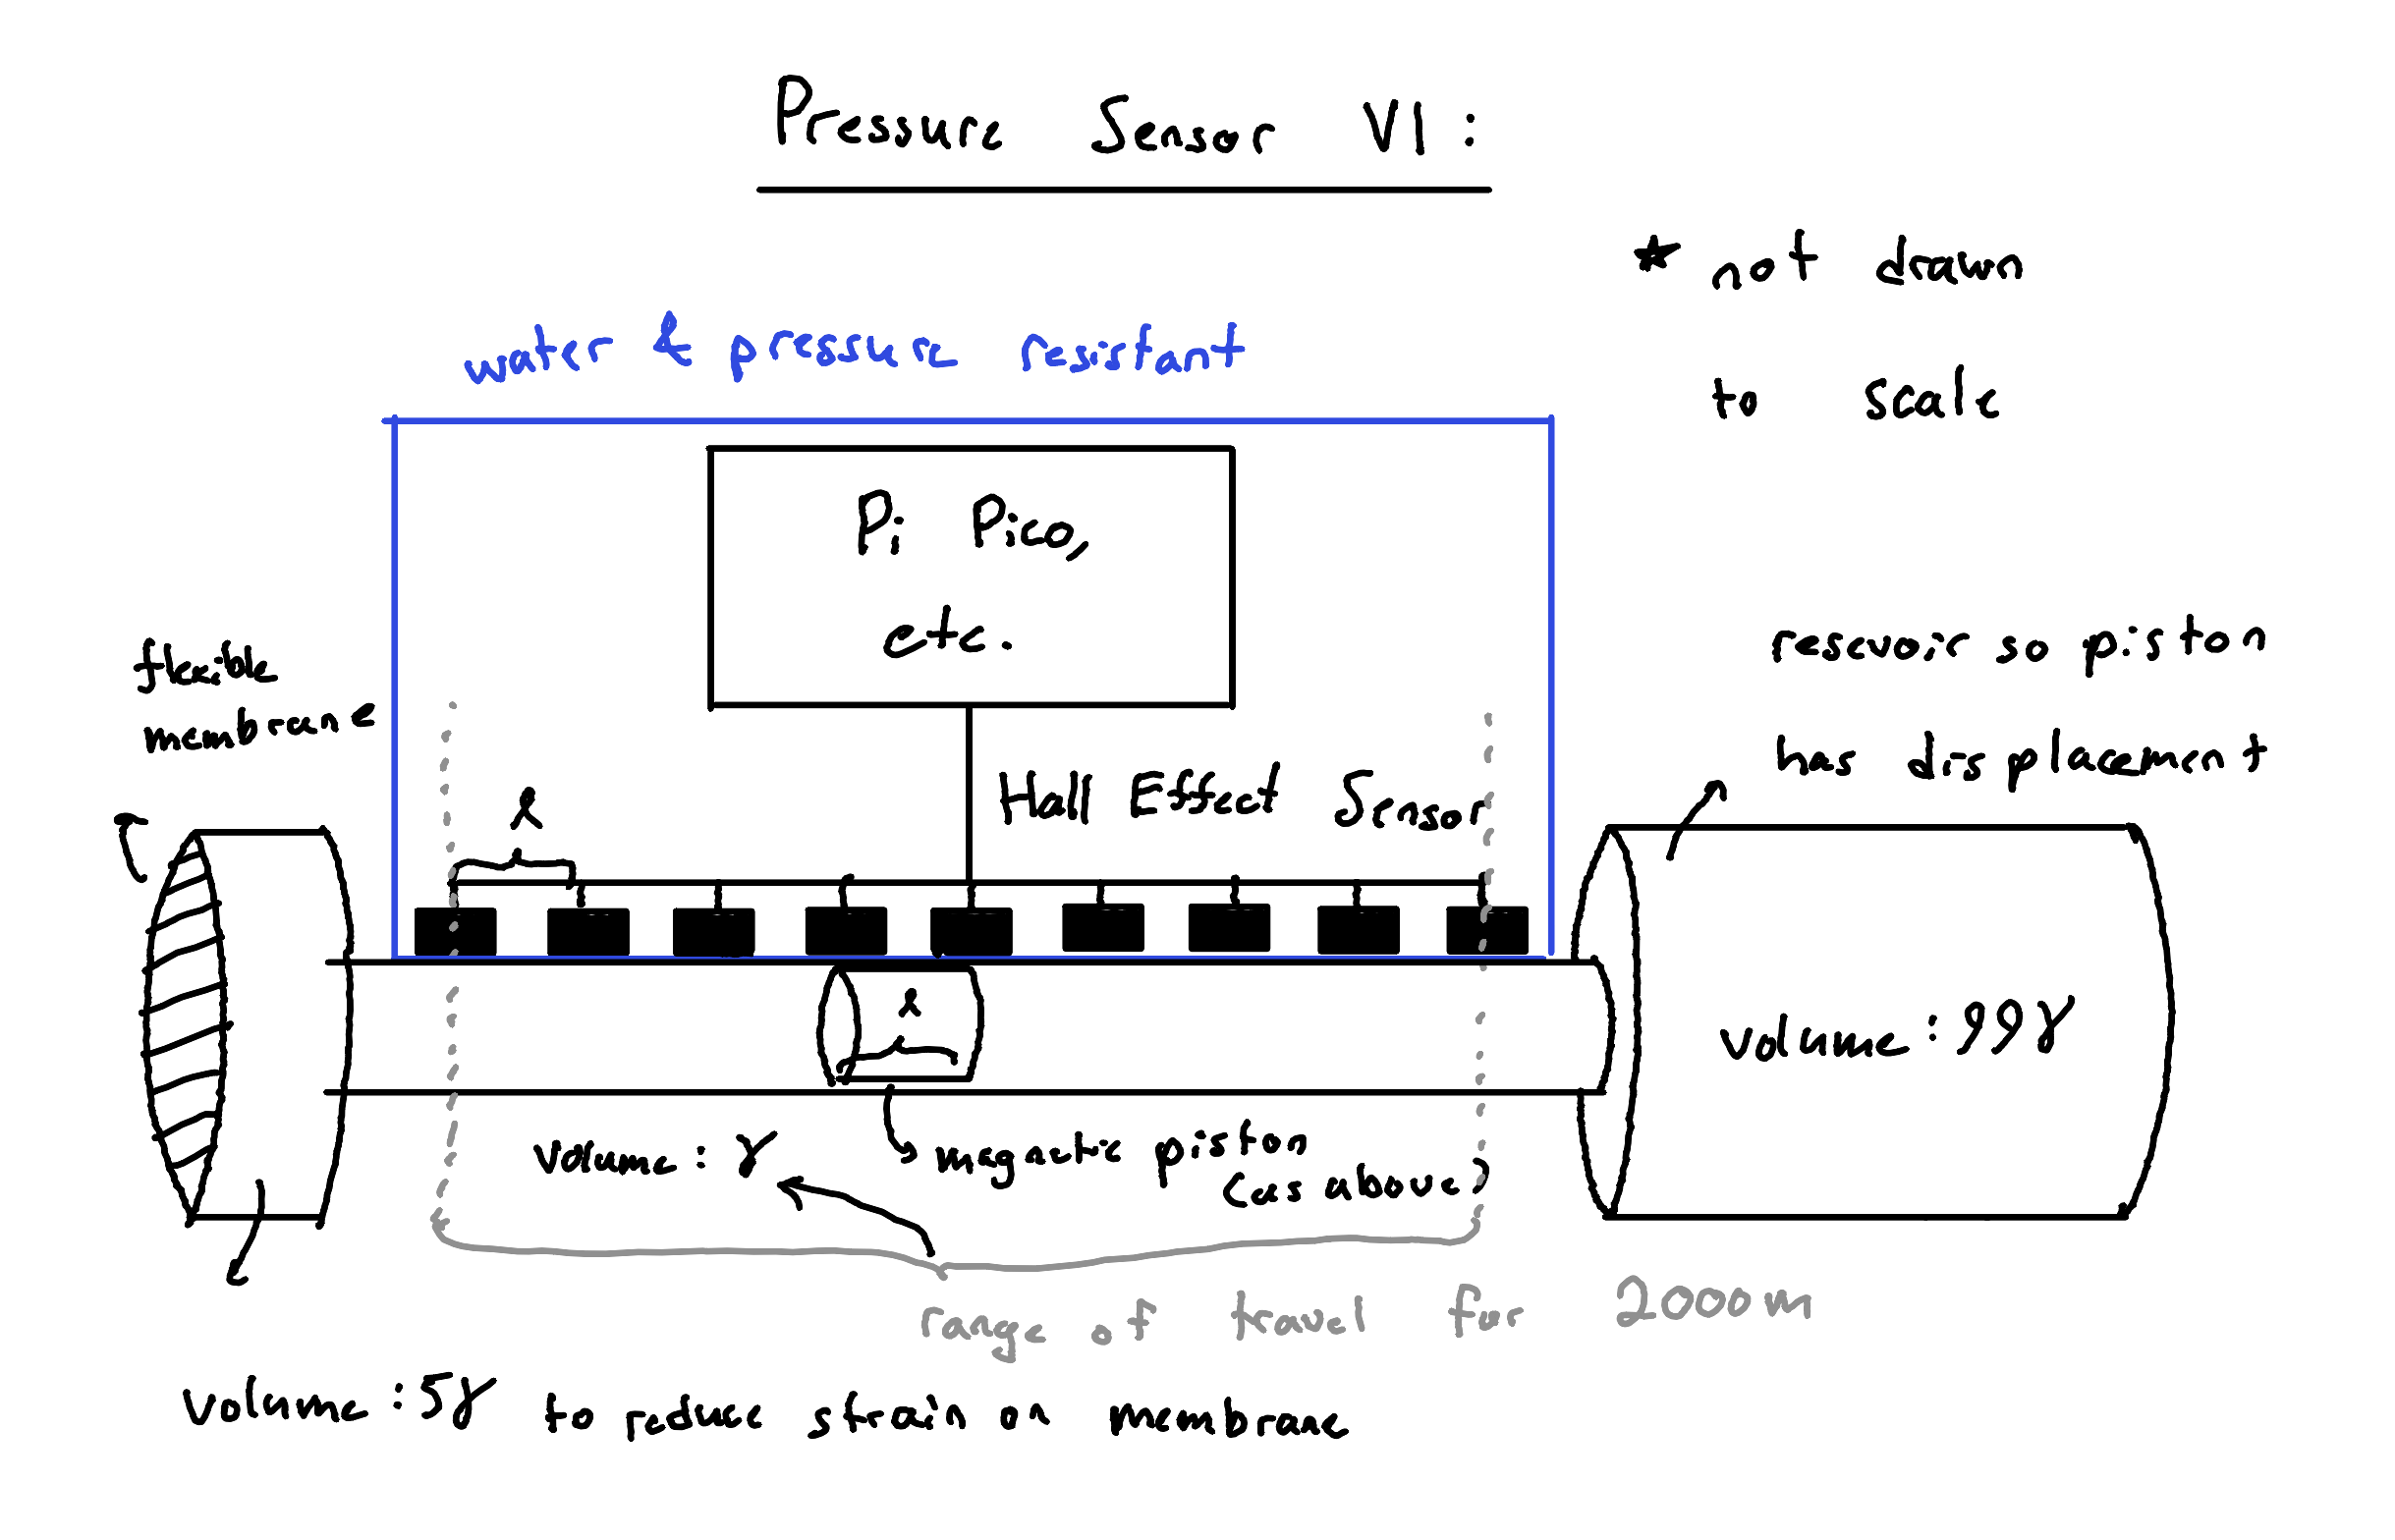 Pressure Sensor V1:
* not drawn
to scale
water & pressure resistant
Pi Pico,
etc.
flexible
membrane
resevoir so piston
has displacement
l
Hall Effect Sensor
l
volume: 99γ
volume: γ
magnetic piston
(as above)
range of travel for 2000m
volume: 5γ to reduce strain on membrane